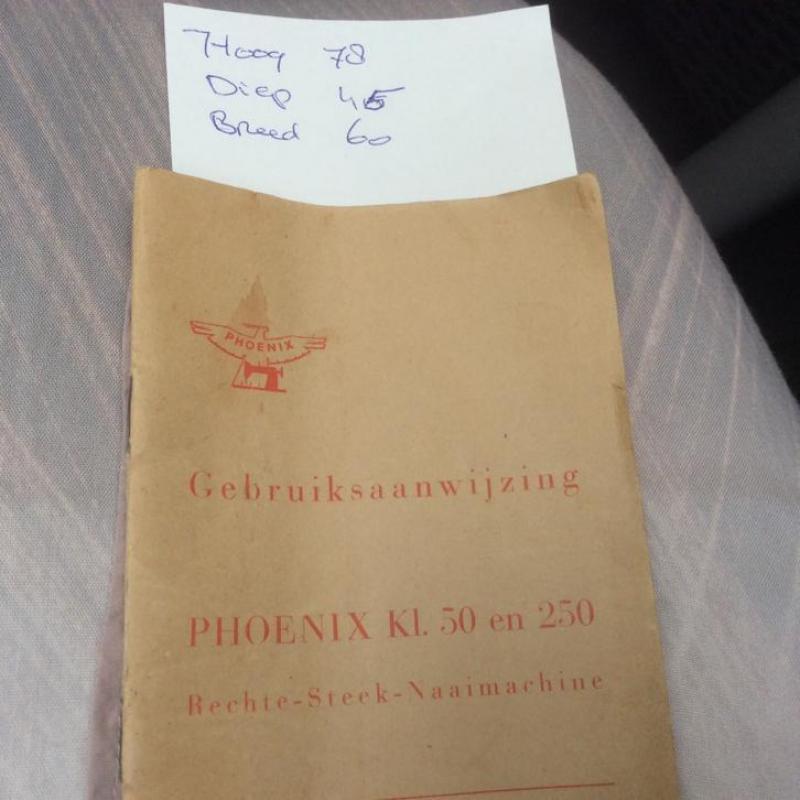 Hoog 78
Diep 45
Breed 60
PHOENIX
Gebruiksaanwijzing
PHOENIX Kl. 50 en 250
Rechte-Steek-Naaimachine